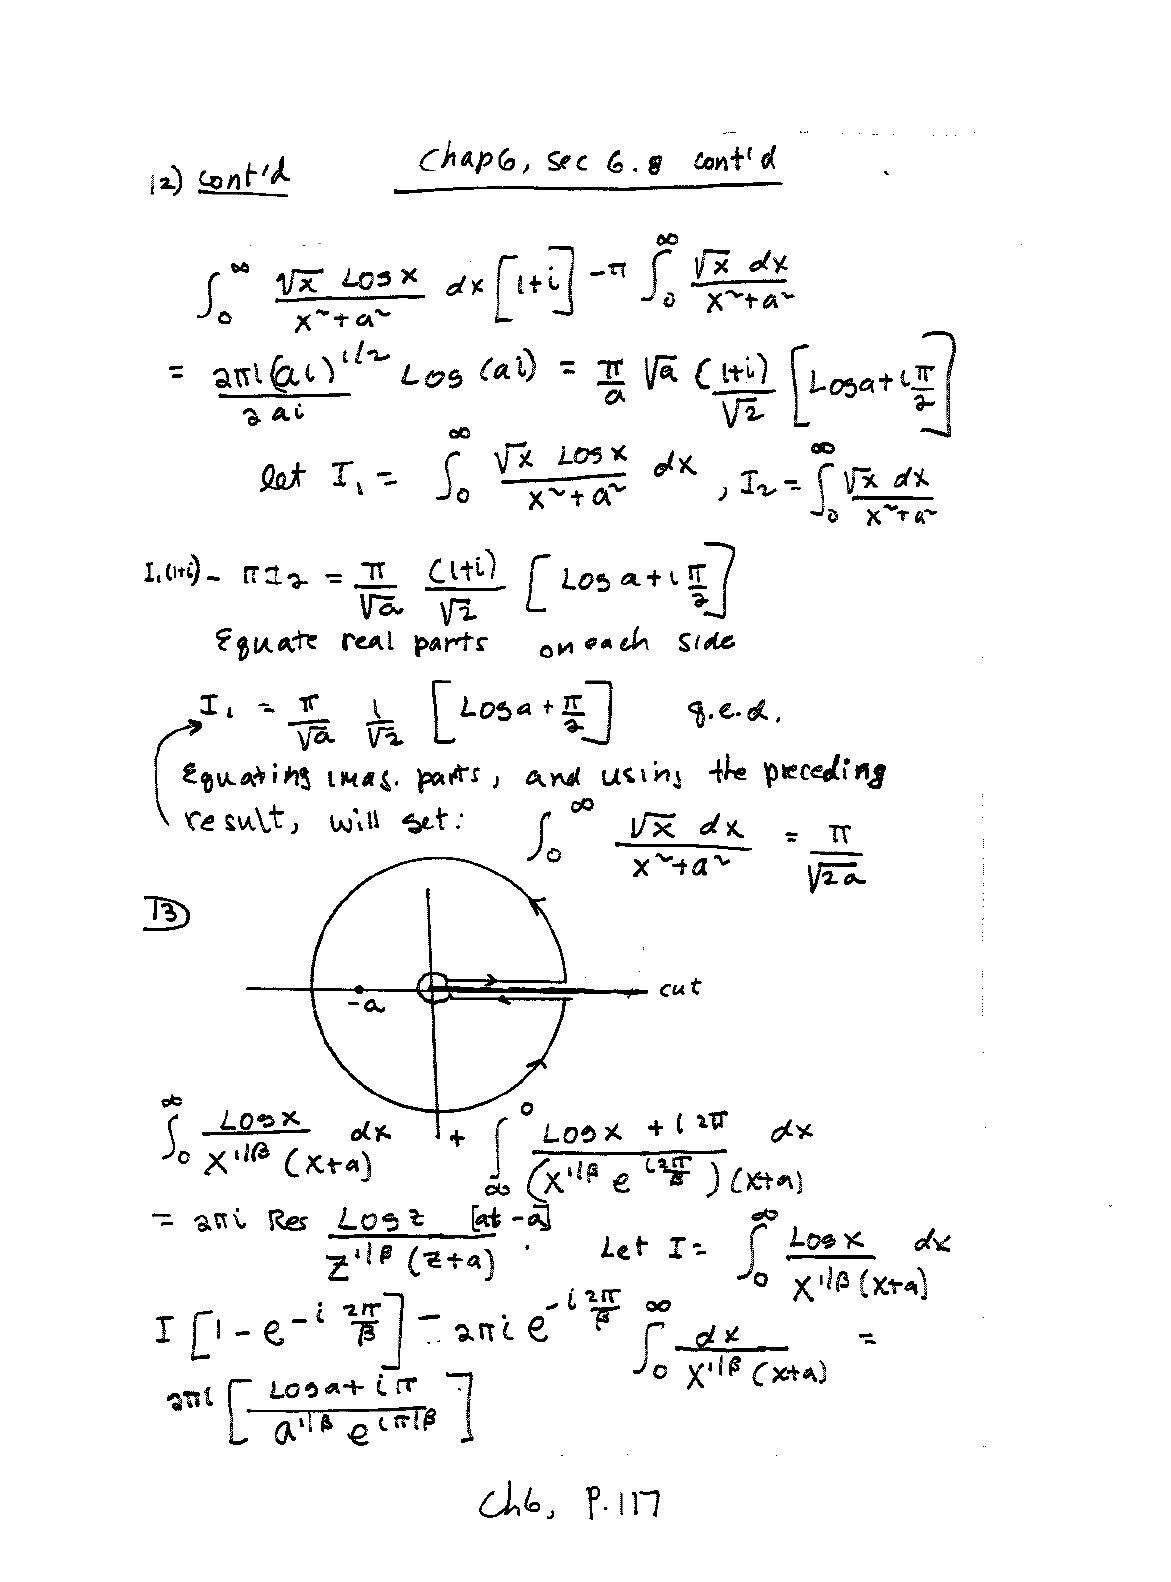 Chap 6, sec 6.8 cont'd
12) cont'd
∫₀^∞ √x Log x / (x²+a²) dx [1+i] - π ∫₀^∞ √x dx / (x²+a²)
= 2πi(ai)^{1/2} / 2ai Log (ai) = π/a √a (1+i)/√2 [Log a + i π/2]
let I₁ = ∫₀^∞ √x Log x / (x²+a²) dx , I₂ = ∫₀^∞ √x dx / (x²+a²)
I₁(1+i) - π I₂ = π/√a (1+i)/√2 [Log a + i π/2]
Equate real parts on each side
I₁ = π/√a 1/√2 [Log a + π/2] q.e.d.
Equating imag. parts, and using the preceding
result, will get: ∫₀^∞ √x dx / (x²+a²) = π/√2a
13
-a
cut
∫₀^∞ Log x / (x^{1/β} (x+a)) dx + ∫_∞^0 (Log x + i 2π) / ((x^{1/β} e^{i 2π/β}) (x+a)) dx
= 2πi Res Log z / (z^{1/β} (z+a)) [at -a] . Let I = ∫₀^∞ Log x / (x^{1/β} (x+a)) dx
I [1 - e^{-i 2π/β}] - 2πi e^{-i 2π/β} ∫₀^∞ dx / (x^{1/β} (x+a)) =
2πi [ (Log a + iπ) / (a^{1/β} e^{iπ/β}) ]
Ch6, P.117